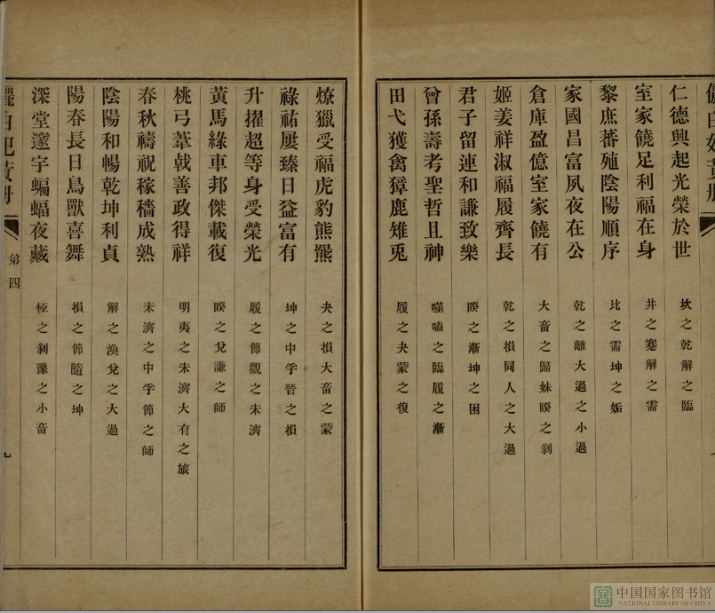 仁德興起光榮於世 坎之乾解之臨
室家饒足利福在身 井之蹇解之需
黎庶蕃殖陰陽順序 比之需坤之姤
家國昌富夙夜在公 乾之離大過之小過
倉庫盈億室家饒有 大畜之歸妹睽之剝
姬姜祥淑福履齊長 乾之損同人之大過
君子留連和謙致樂 睽之漸坤之困
曾孫壽考聖哲且神 噬嗑之臨履之漸
田弋獲禽獐鹿雉兎 履之夬蒙之復
燎獵受福虎豹熊羆 夬之損大畜之蒙
祿祐屢臻日益富有 坤之中孚晉之損
升擢超等身受榮光 履之節觀之未濟
黃馬綠車邦傑載復 睽之兌謙之師
桃弓葦戟善政得祥 明夷之未濟大有之旅
春秋禱祝稼穡成熟 未濟之中孚節之師
陰陽和暢乾坤利貞 解之渙兌之大過
陽春長日鳥獸喜舞 損之節隨之坤
深堂邃宇蝙蝠夜藏 恆之剝豫之小畜
第四
九
中国国家图书馆
NATIONAL LIBRARY OF CHINA